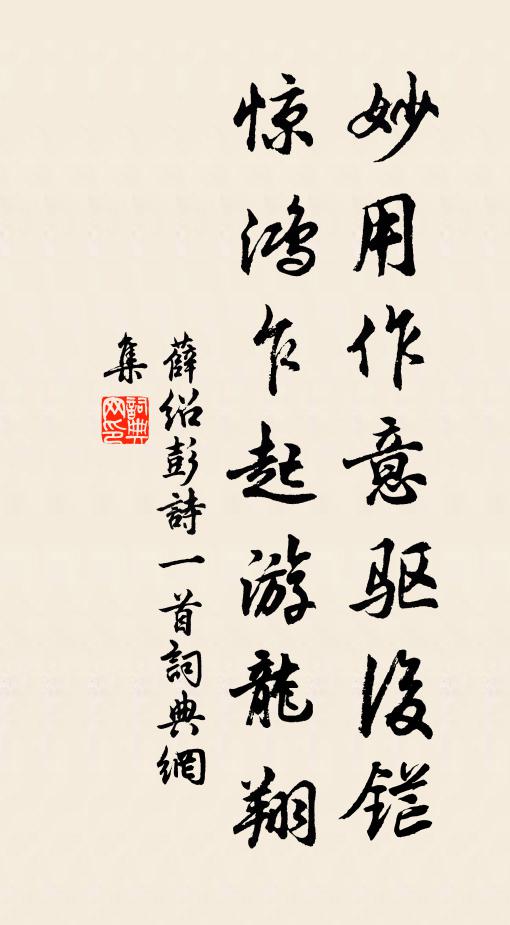 妙用作意驱後铓
惊鸿乍起游龍翔
薛绍彭詩一首詞典網
集
詞典网印